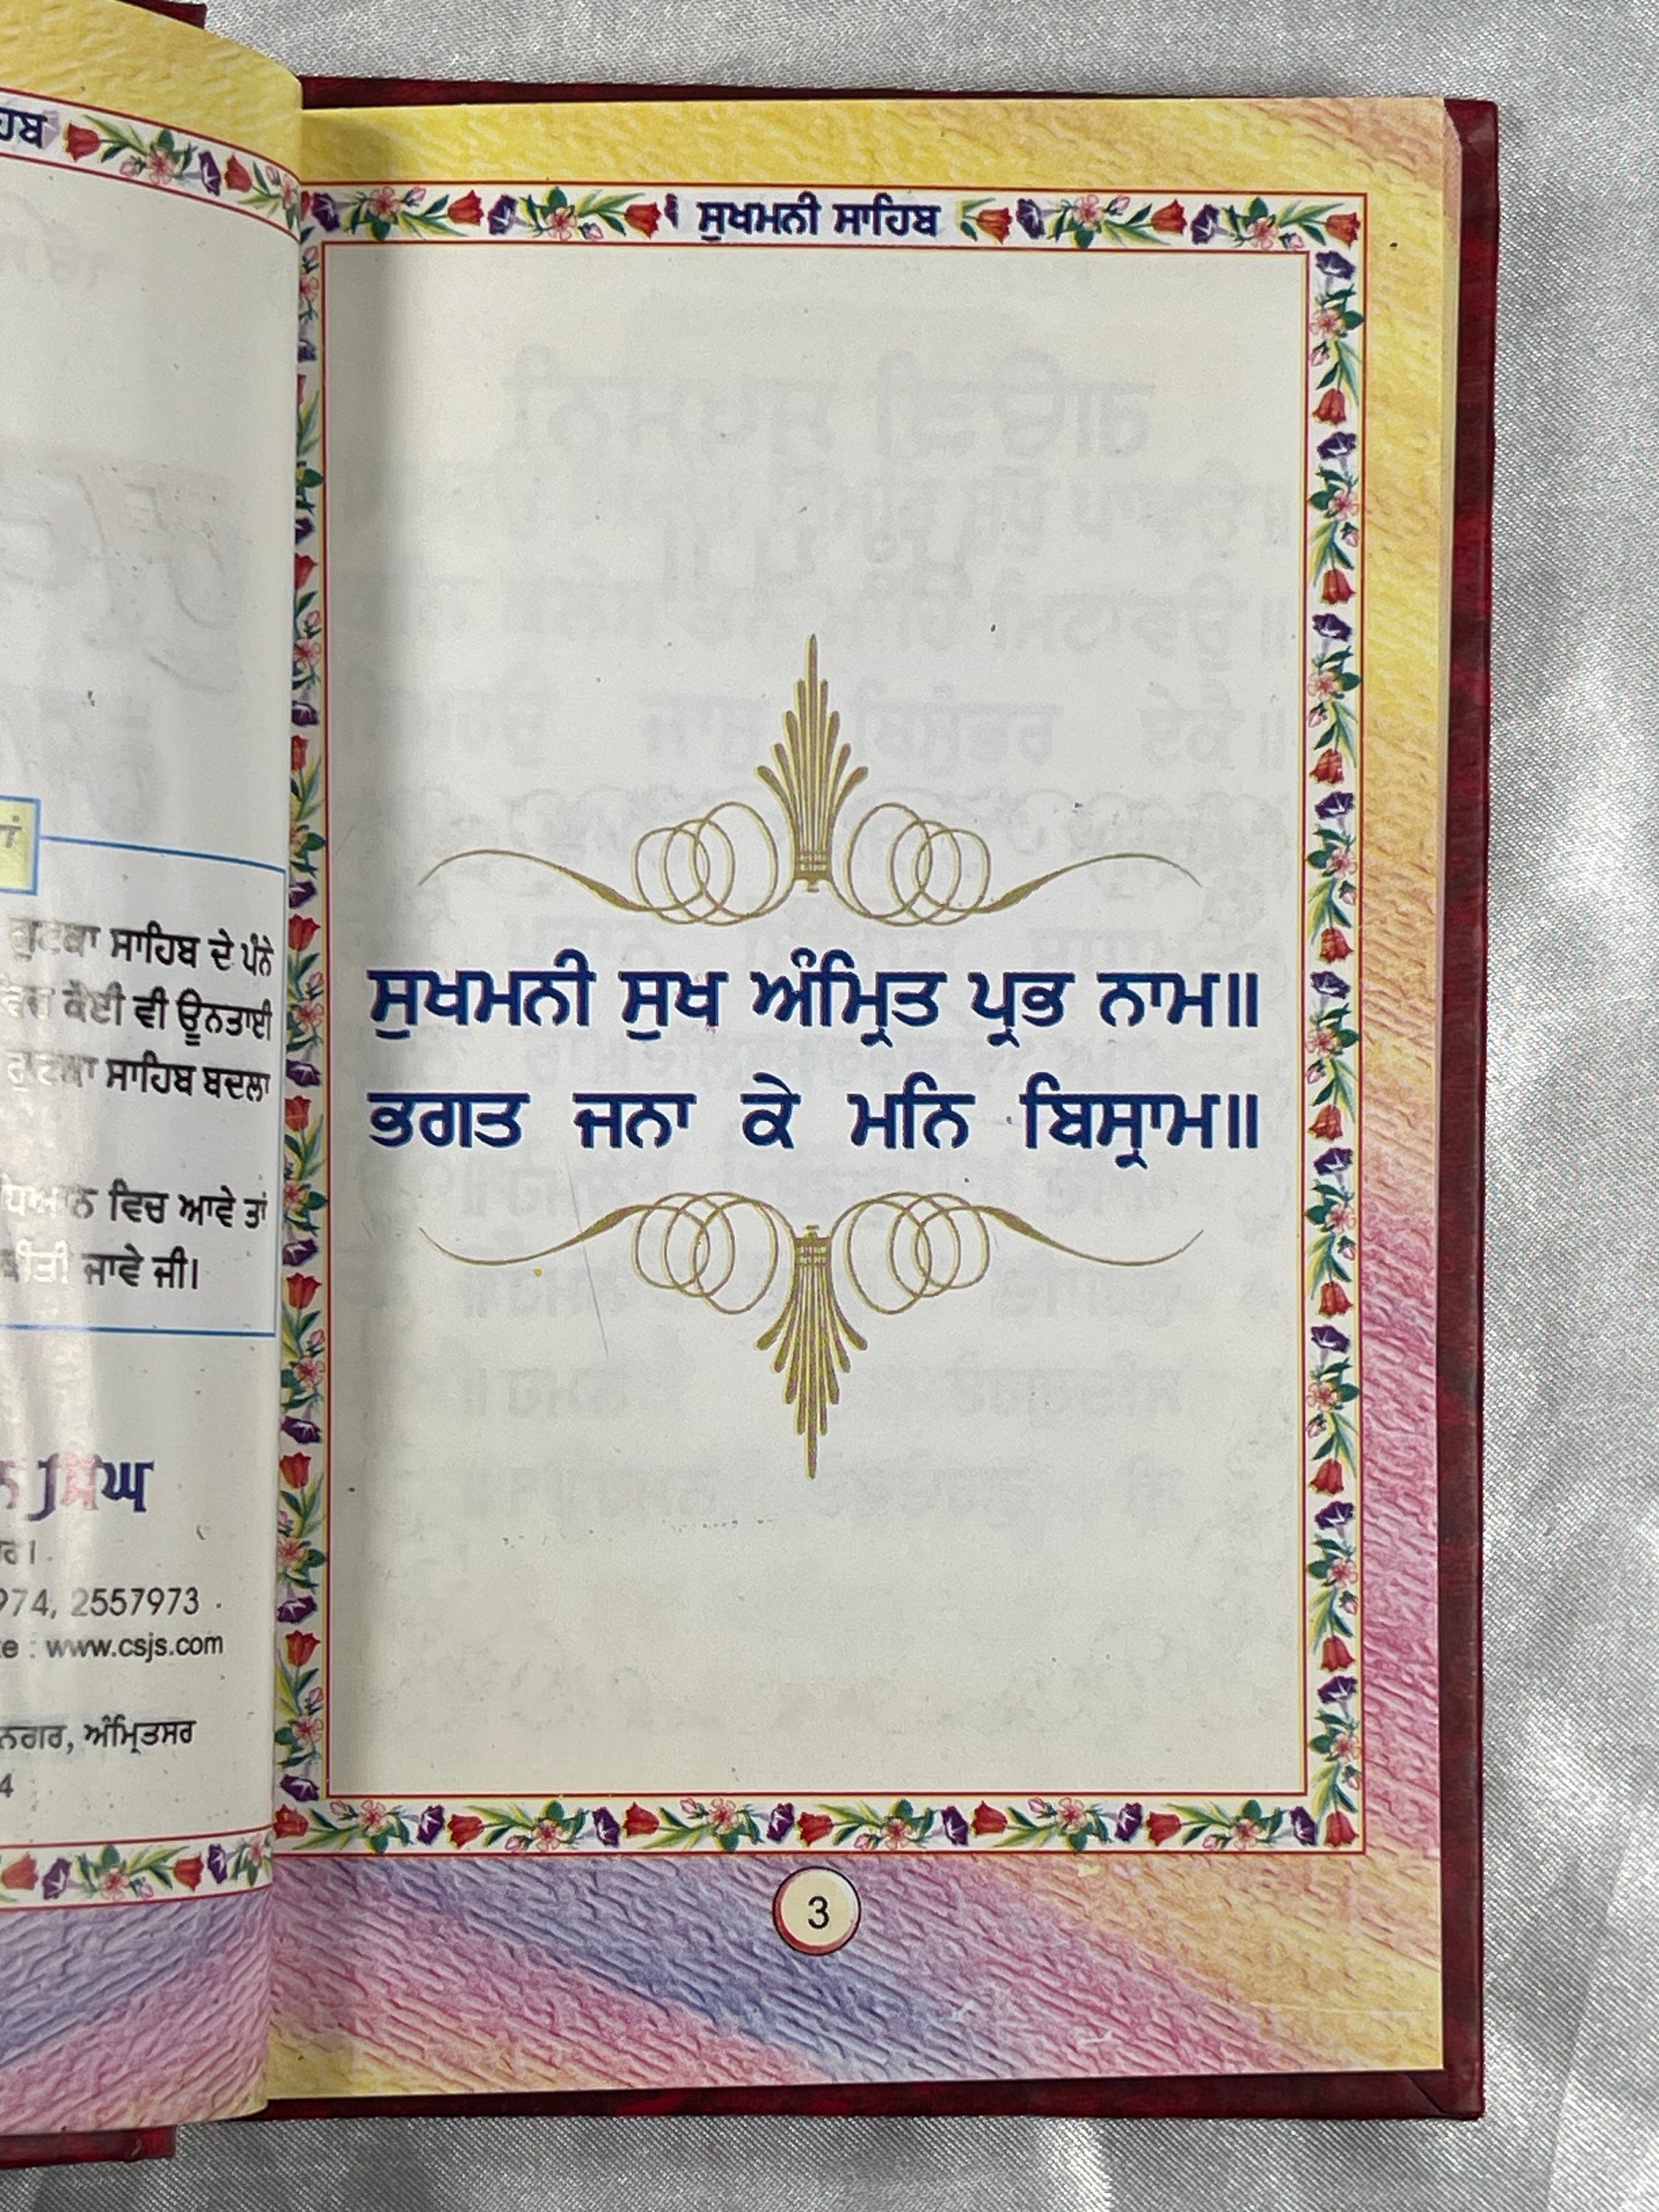 ਸਾਹਿਬ ਦੇ ਪੰਨੇ
ਕੋਈ ਵੀ ਊਨਤਾਈ
ਸਾਹਿਬ ਬਦਲਾ
ਵਿਚ ਆਵੇ ਤਾਂ
ਜਾਵੇ ਜੀ।
ਸਿੰਘ
2557973
www.csjs.com
ਨਗਰ, ਅੰਮ੍ਰਿਤਸਰ
ਸੁਖਮਨੀ ਸਾਹਿਬ
ਸੁਖਮਨੀ ਸੁਖ ਅੰਮ੍ਰਿਤ ਪ੍ਰਭ ਨਾਮ॥
ਭਗਤ ਜਨਾ ਕੇ ਮਨਿ ਬਿਸ੍ਰਾਮ॥
3